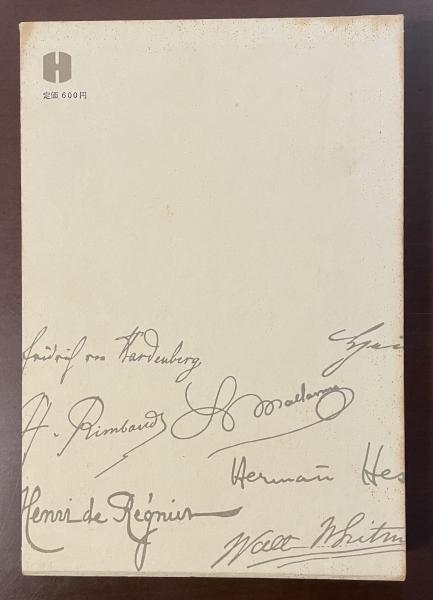 H
定価 600円
Friedrich von Hardenberg
A. Rimbaud
St Mallarmé
Hermann Hes
Henri de Régnier
Walt Whitm